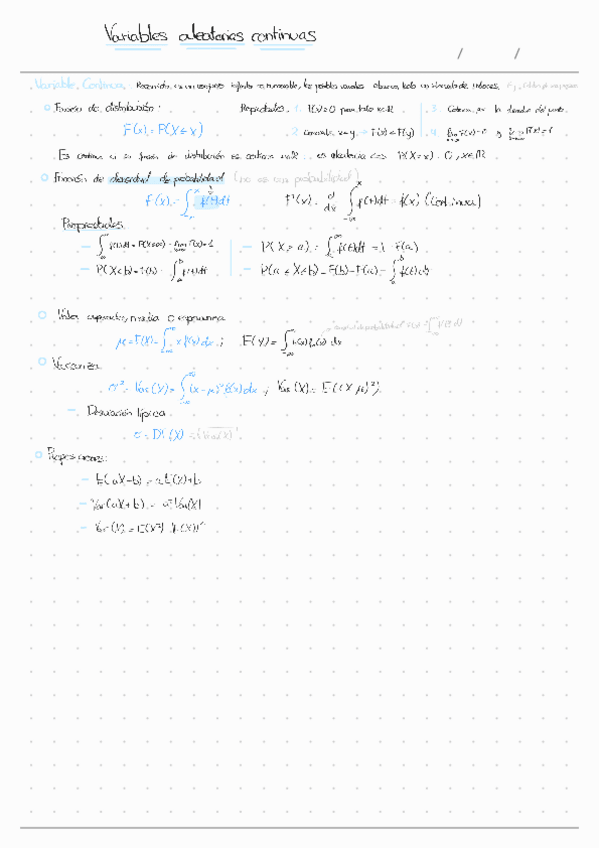 Variables aleatorias continuas
/ /
Variable Continua. Recorrido es un conjunto infinito no numerable, los posibles valores abarcan todo un intervalo de números.
Función de distribución: Propiedades. 1. F(x) ≥ 0 para todo x∈ℝ 3. Continua por la derecha
F(x) = P(X ≤ x) 2. creciente x<y → F(x) ≤ F(y) 4. lim F(x) = 0 y lim F(x) = 1
Es continua si su función de distribución es continua P(X = x) = 0, x∈ℝ
Función de densidad de probabilidad (no es una probabilidad)
F(x) = ∫_{-∞}^{x} f(t)dt F'(x) = d/dx ∫_{-∞}^{x} f(t)dt = f(x) (Continua)
Propiedades
– P(X > a) = ∫_{a}^{∞} f(t)dt = 1 - F(a)
– P(X < b) = F(b) = ∫_{-∞}^{b} f(t)dt – P(a ≤ X ≤ b) = F(b) - F(a) = ∫_{a}^{b} f(t)dt
Valor esperado, media o esperanza
μ = E(X) = ∫_{-∞}^{∞} x f(x) dx ;
Varianza
σ² = Var(X) = ∫_{-∞}^{∞} (x-μ)² f(x) dx ; Var(X) = E((X-μ)²)
– Desviación típica
σ = DT(X) = √Var(X)
Propiedades:
– E(aX+b) = aE(X)+b
– Var(aX+b) = a² Var(X)
– Var(X) = E(X²) - E(X)²